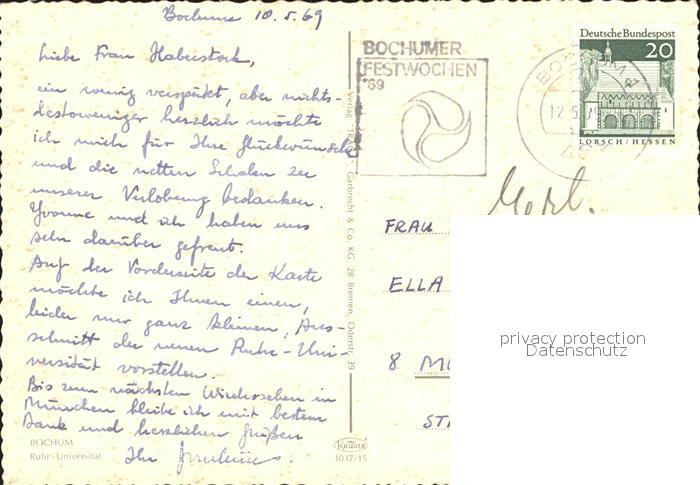 Bochum 10.5.69
Liebe Frau Haberstock,
ein wenig verspätet, aber nichts-
destoweniger herzlich möchte
ich mich für Ihre Glückwünsche
und die netten Schalen zu
unserer Verlobung bedanken.
Yvonne und ich haben uns
sehr darüber gefreut.
Auf der Vorderseite der Karte
möchte ich Ihnen einen,
leider nur ganz kleinen, Aus-
schnitt der neuen Ruhr-Uni-
versität vorstellen.
Bis zum nächsten Wiedersehen in
München bleibe ich mit bestem
Dank und herzlichen Grüßen
Ihr
BOCHUM
Ruhr-Universität
Garbrecht & Co. KG, 28 Bremen, Oderstr. 39
KRÜGER
1037/15
BOCHUMER
FESTWOCHEN
'69
BOCHUM
12.5.69
Deutsche Bundespost
20
LORSCH/HESSEN
FRAU
ELLA
8 MÜ
ST
privacy protection
Datenschutz